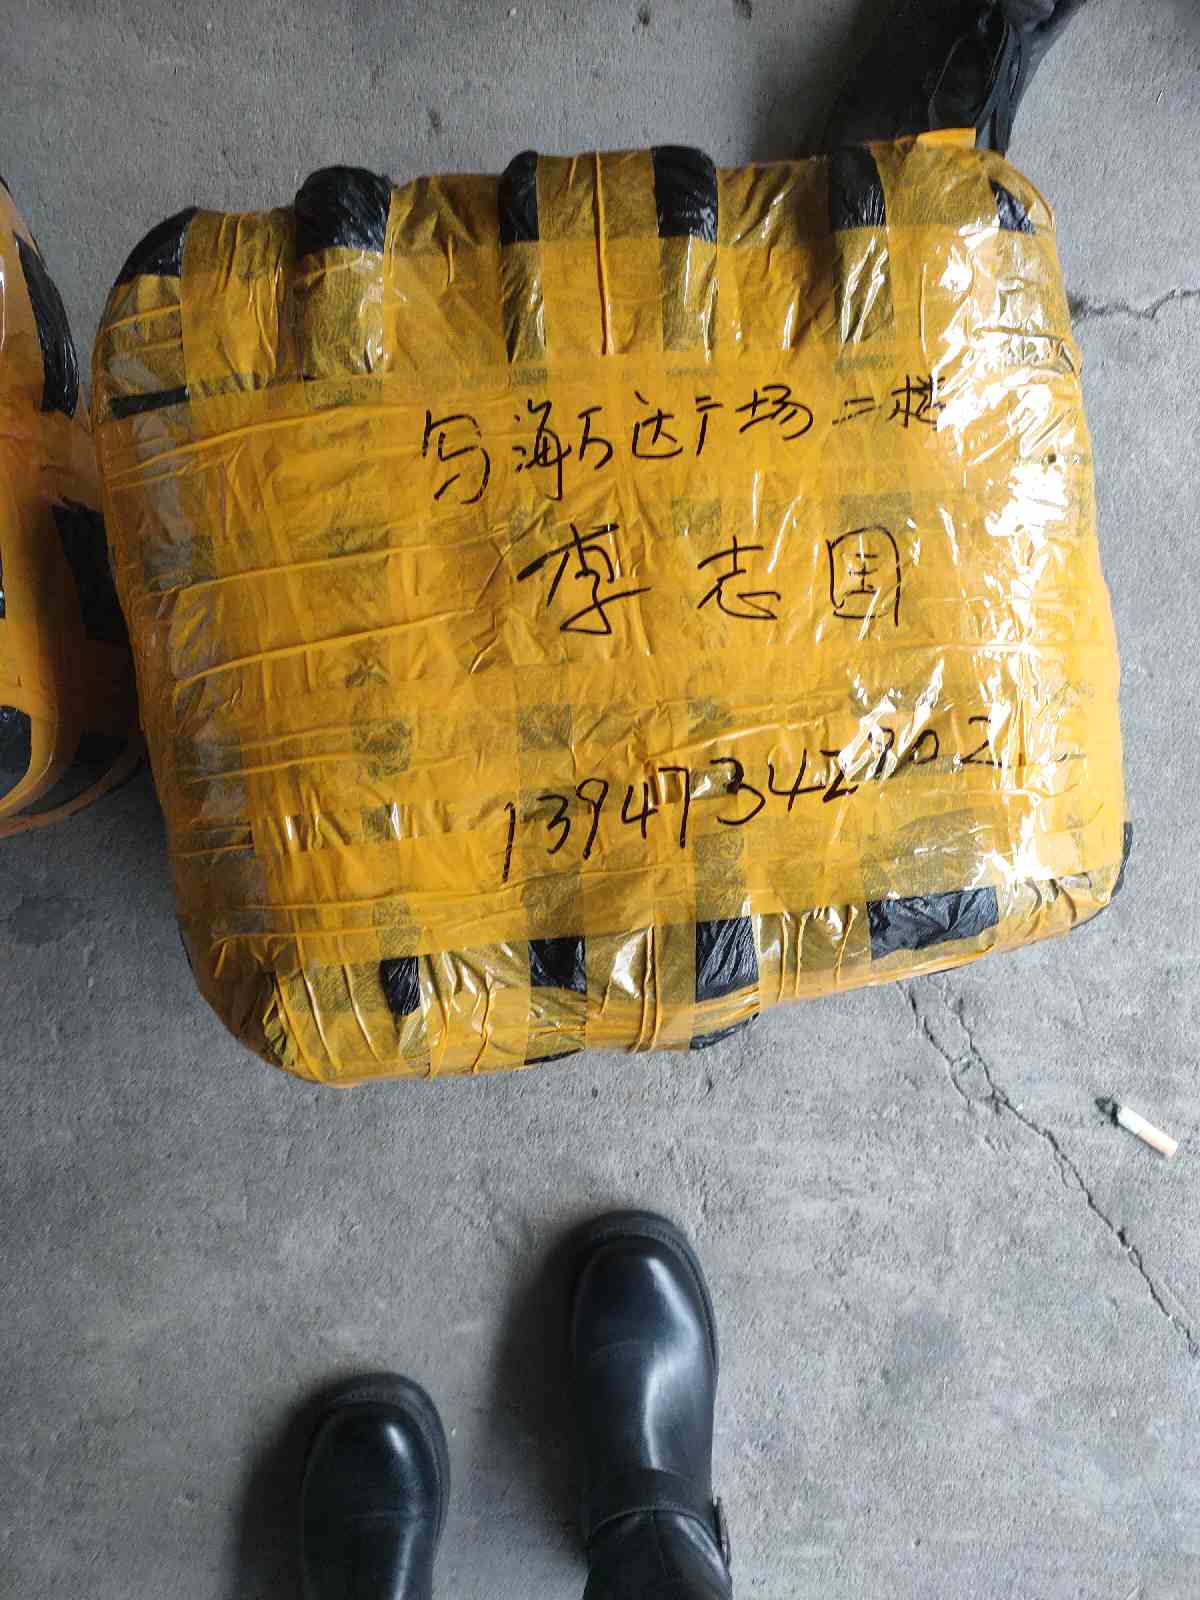 乌海万达广场二楼
李志国
13947342902